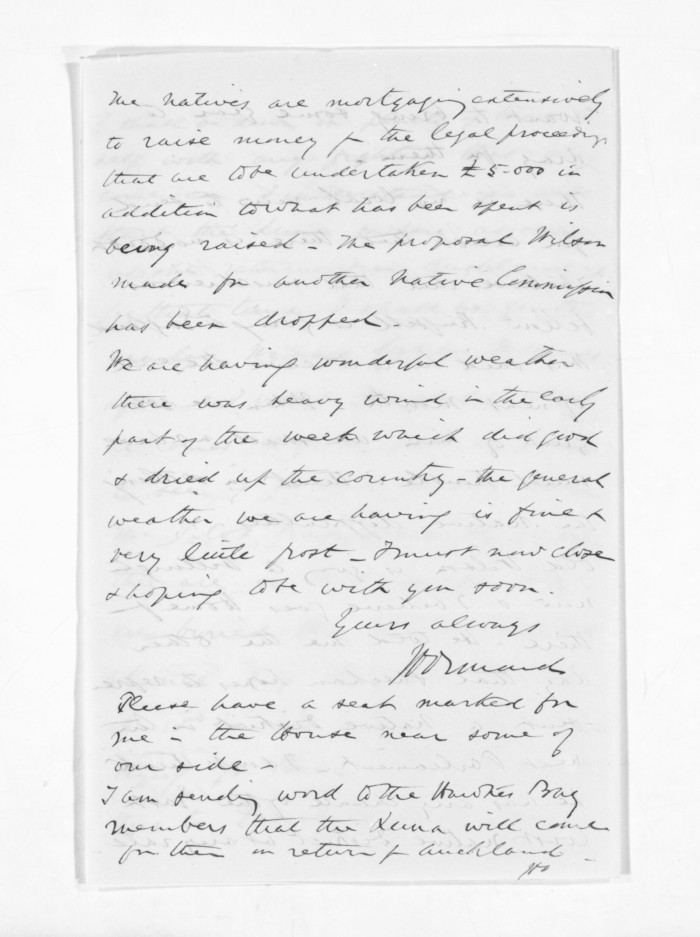 The Natives are mortgaging extensively
to raise money for the legal proceedings
that are to be undertaken £5.000 in
addition to what has been spent is
being raised - The proposal Wilson
made for another Native Commission
has been dropped
We are having wonderful weather
there was heavy wind in the early
part of the week which did good
& dried up the country - the general
weather we are having is fine &
very little frost - I must now close
& hoping to be with you soon.
Yours always
JD Ormond
Please have a seat marked for
me in the House near some of
our side -
I am sending word to the Hawkes Bay
members that the Luna will come
for them on return fr Auckland -